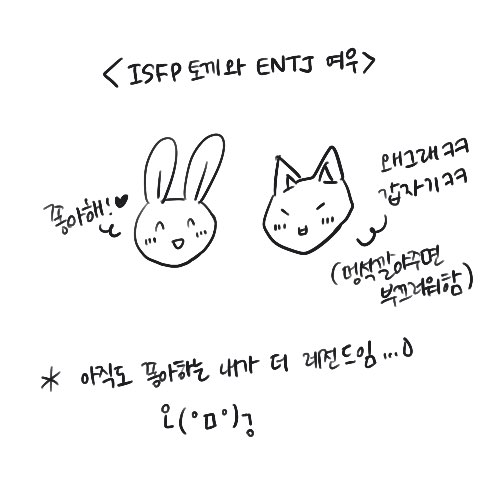 <ISFP 토끼와 ENTJ 여우>
쫗아해!♥
왜그래ㅋㅋ
갑자기ㅋㅋ
(멍석깔아주면
부끄러워함)
* 아직도 좋아하는 내가 더 레전드임...0
오(°ㅁ°)ફ